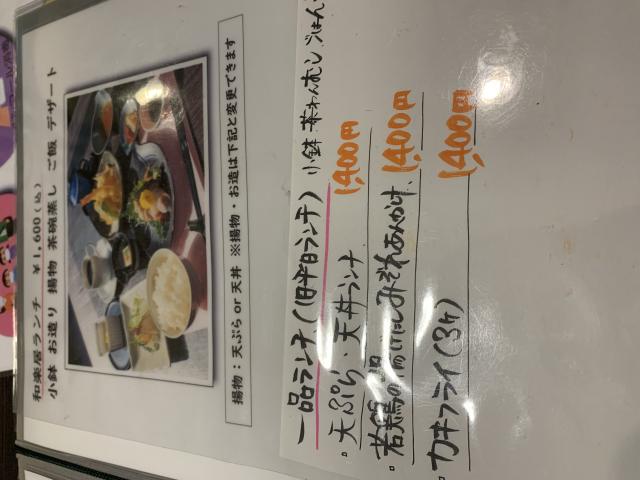 和楽居ランチ ￥1,600(込)
小鉢 お造り 揚物 茶碗蒸し ご飯 デザート
揚物：天ぷら or 天丼 ※揚物・お造は下記と変更できます
一品ランチ、(旧平日ランチ) 小鉢・茶わんむし
・天ぷら、天丼ランチ 1,400円
・若鶏の揚げだしみぞれあんかけ、1,400円
・カキフライ(3ケ) 1,400円